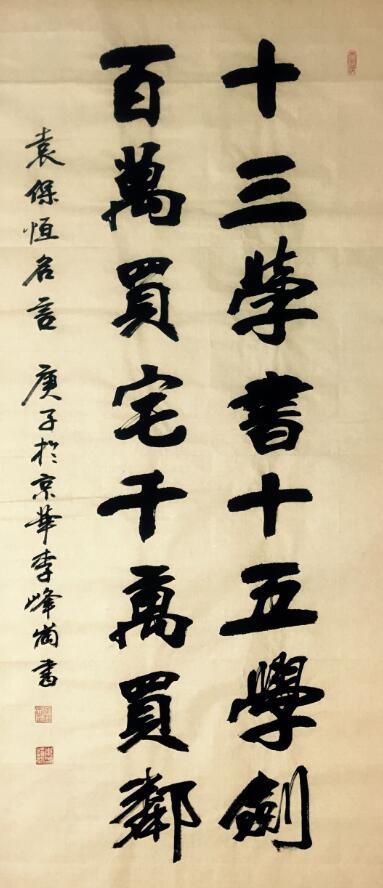 十三學書十五學劍
百萬買宅千萬買鄰
袁保恒名言 庚子於京華李峰尚書